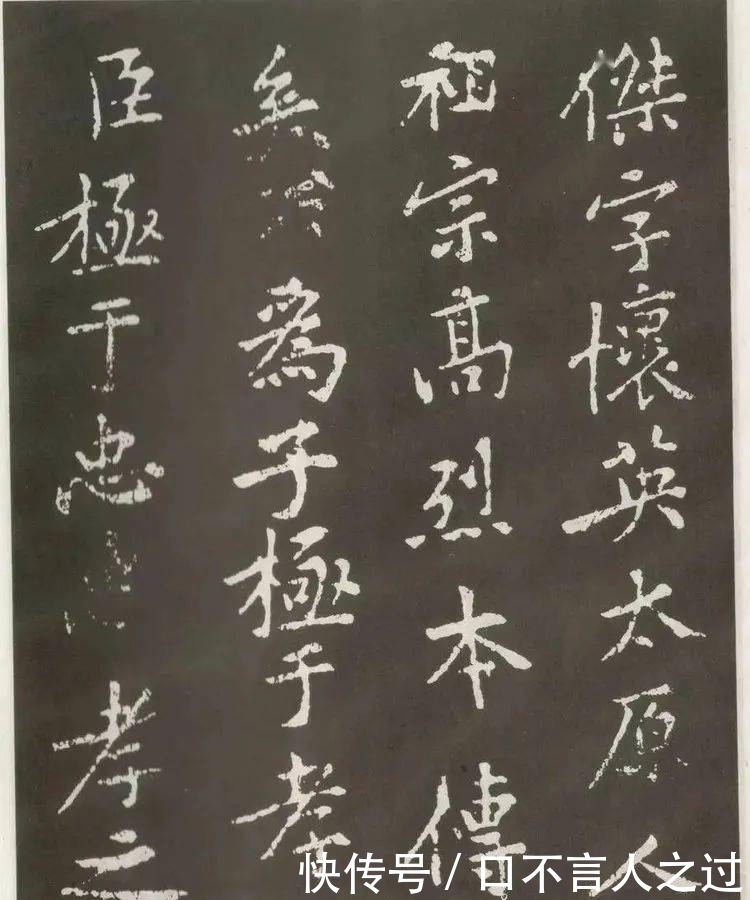 傑字懷英太原人
祖宗高烈本傳
為子極于孝
臣極于忠忠孝之
快传号/口不言人之过